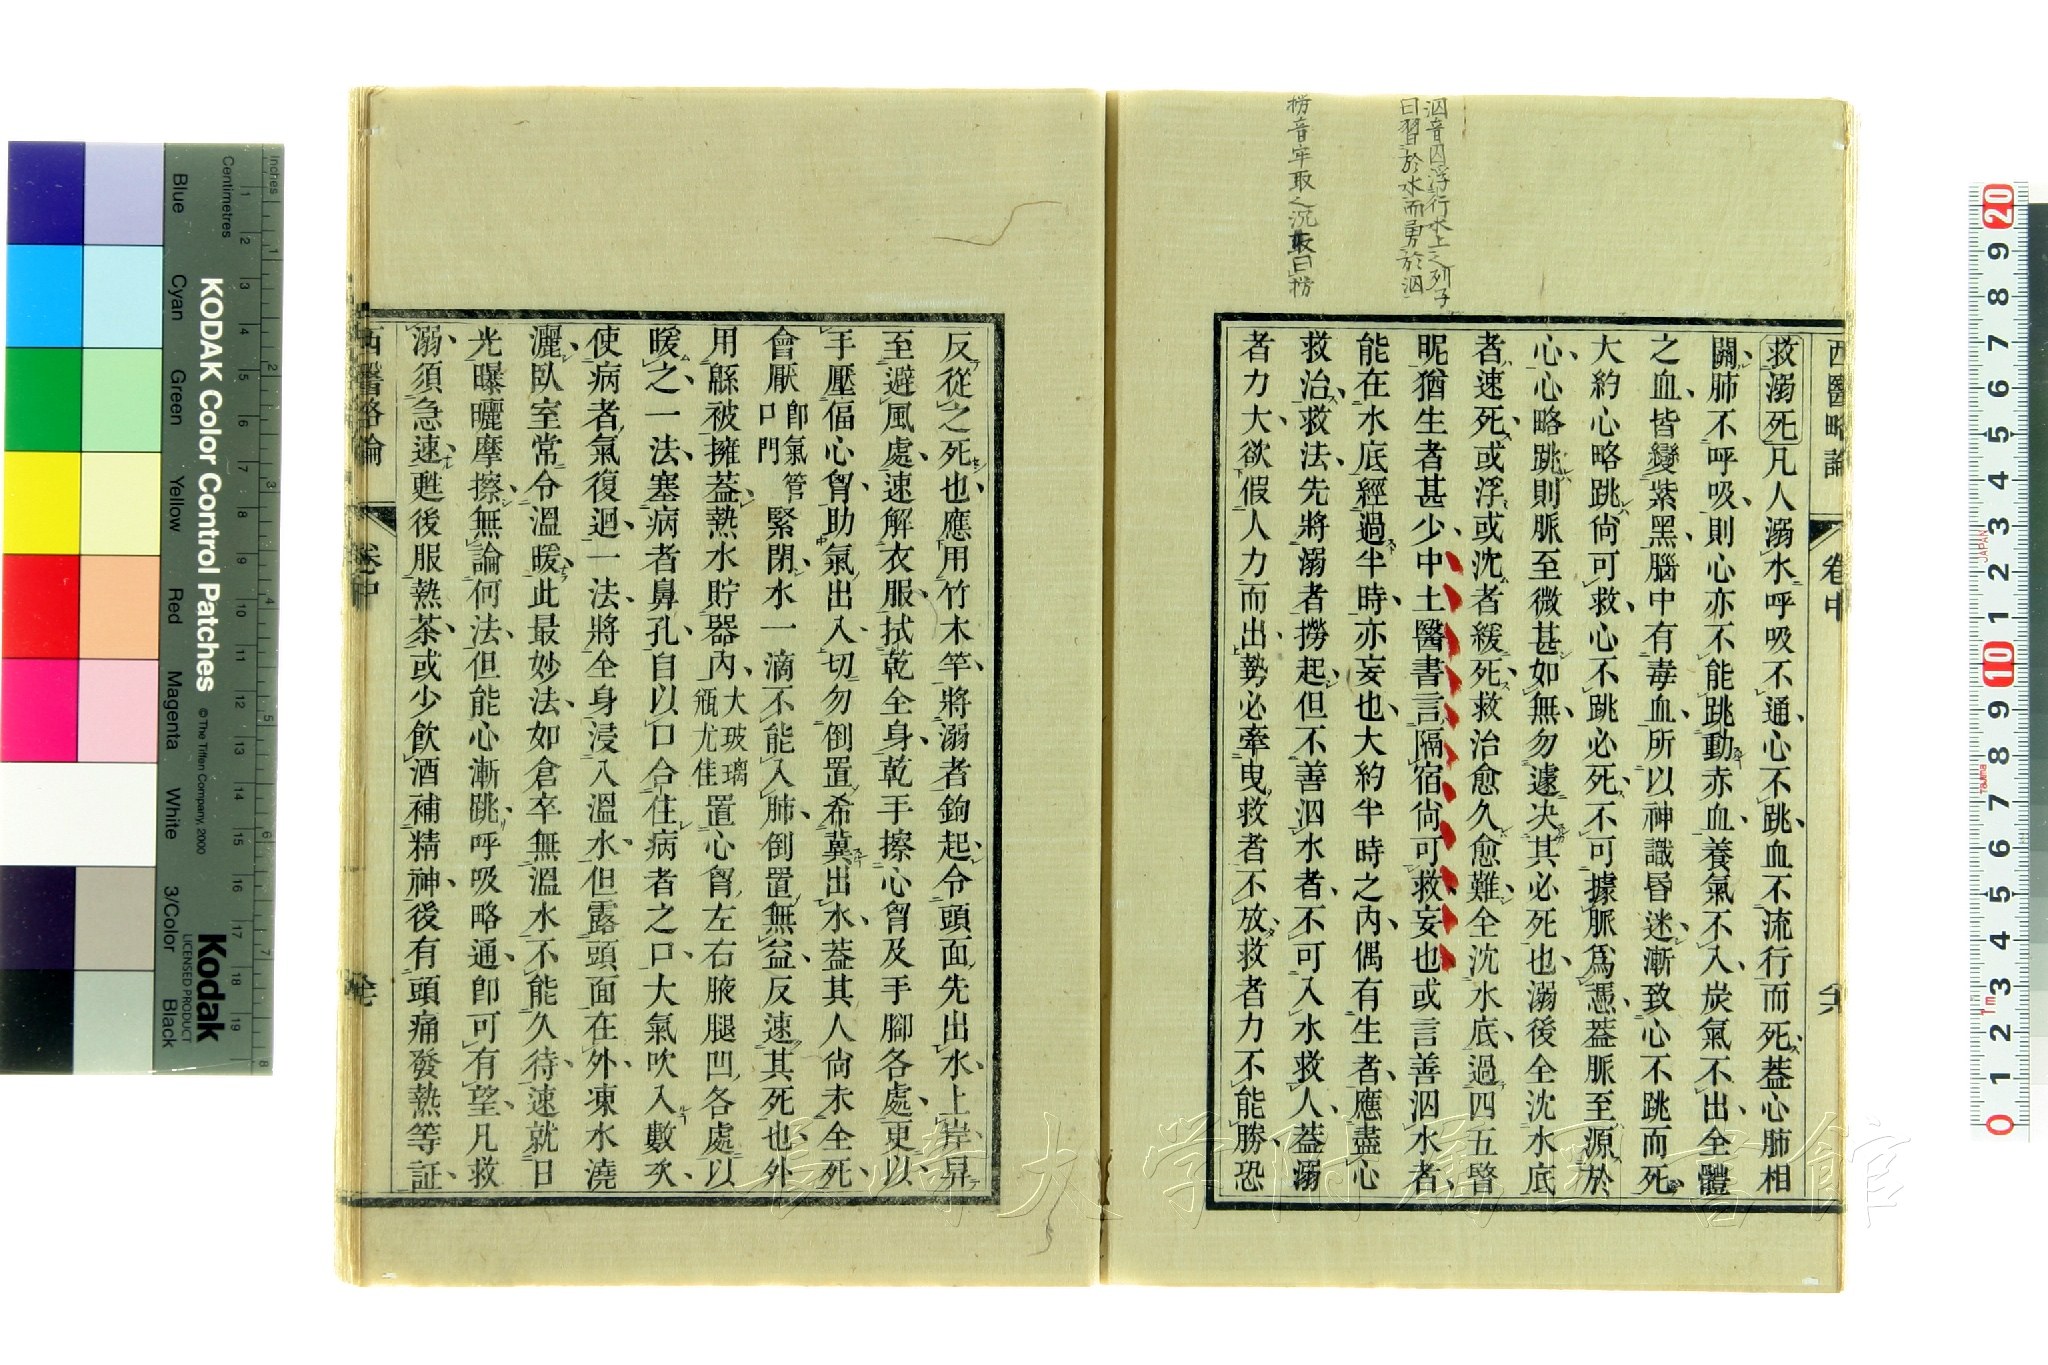 泅音囚浮行水上之列子
曰習於水而勇於泅
撈音牢取之沉取曰撈
西醫略論
卷中
救溺死凡人溺水呼吸不通心不跳血不流行而死葢心肺相
關肺不呼吸則心亦不能跳動赤血養氣不入炭氣不出全體
之血皆變紫黑腦中有毒血所以神識昏迷漸致心不跳而死
大約心略跳尙可救心不跳必死不可據脈爲憑葢脈至源於
心心略跳則脈至微甚如無勿遽决其必死也溺後全沈水底
者速死或浮或沈者緩死救治愈久愈難全沈水底過四五瞥
昵猶生者甚少中土醫書言隔宿尙可救妄也或言善泅水者
能在水底經過半時亦妄也大約半時之內偶有生者應盡心
救治救法先將溺者撈起但不善泅水者不可入水救人葢溺
者力大欲假人力而出勢必牽曳救者不放救者力不能勝恐
反從之死也應用竹木竿將溺者鉤起令頭面先出水上岸昇
至避風處速解衣服拭乾全身乾手擦心胷及手腳各處更以
手壓偪心胷助氣出入切勿倒置希冀出水葢其人尙未全死
會厭卽氣管口門緊閉水一滴不能入肺倒置無益反速其死也外
用緜被擁葢熱水貯器內大玻璃瓶尤佳置心胷左右腋腿凹各處以
暖之一法塞病者鼻孔自以口合住病者之口大氣吹入數次
使病者氣復迴一法將全身浸入溫水但露頭面在外凍水澆
灑臥室常令溫暖此最妙法如倉卒無溫水不能久待速就日
光曝曬摩擦無論何法但能心漸跳呼吸略通卽可有望凡救
溺須急速甦後服熱茶或少飮酒補精神後有頭痛發熱等証
西醫略論
卷中
長崎大学附属図書館
KODAK Color Control Patches
© The Tiffen Company, 2000
Kodak
LICENSED PRODUCT
Inches
Centimetres
Blue
Cyan
Green
Yellow
Red
Magenta
White
3/Color
Black